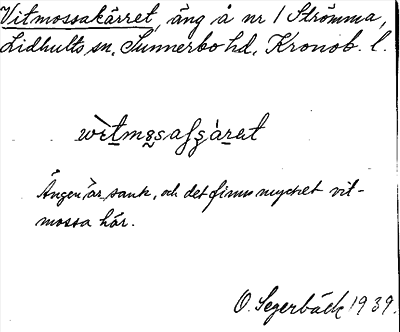 Vitmossakärret, äng å nr 1 Strömma,
Lidhults sn, Sunnerbo hd, Kronob. l.
Ängen är sank, och det finns mycket vit-
mossa här.
O. Segerbäck 1939.